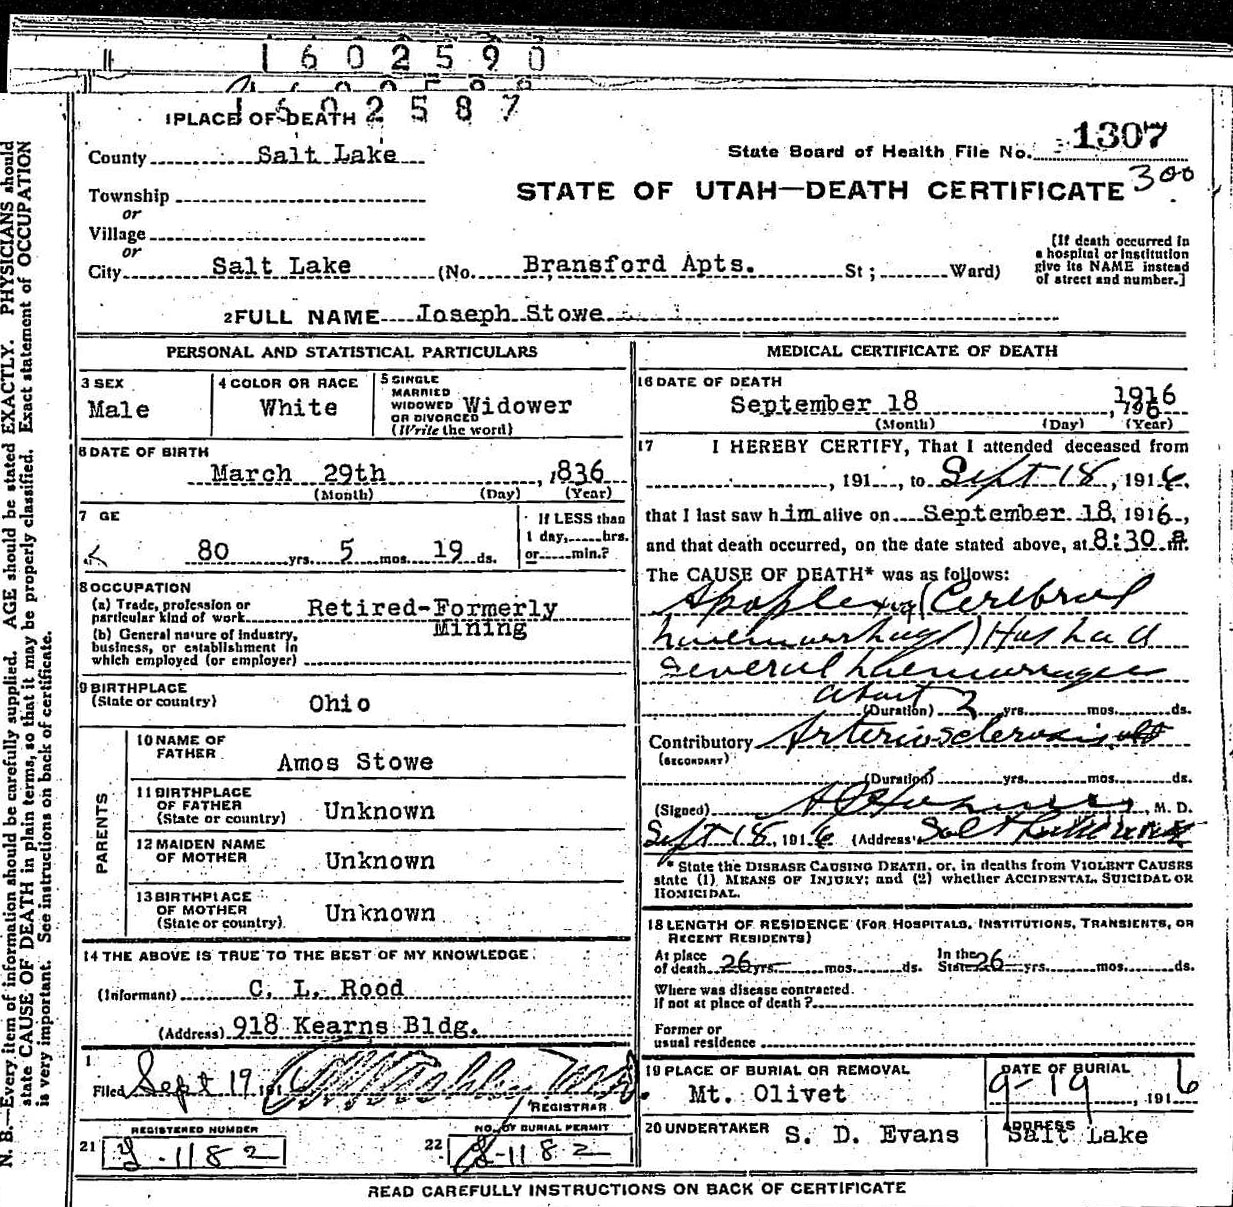 1602590
1602587
1 PLACE OF DEATH
County Salt Lake
State Board of Health File No. 1307
300
STATE OF UTAH—DEATH CERTIFICATE
Township
or
Village
or
City Salt Lake (No. Bransford Apts. St; Ward)
[If death occurred in
a hospital or institution
give its NAME instead
of street and number.]
2 FULL NAME Joseph Stowe
PERSONAL AND STATISTICAL PARTICULARS
3 SEX
Male
4 COLOR OR RACE
White
5 SINGLE
MARRIED
WIDOWED
OR DIVORCED
(Write the word)
Widower
6 DATE OF BIRTH
March 29th, 1836
(Month) (Day) (Year)
7 GE
80 yrs. 5 mos. 19 ds.
If LESS than
1 day, hrs.
or min.?
8 OCCUPATION
(a) Trade, profession or
particular kind of work Retired-Formerly
Mining
(b) General nature of Industry,
business, or establishment in
which employed (or employer)
9 BIRTHPLACE
(State or country) Ohio
PARENTS
10 NAME OF
FATHER Amos Stowe
11 BIRTHPLACE
OF FATHER
(State or country) Unknown
12 MAIDEN NAME
OF MOTHER Unknown
13 BIRTHPLACE
OF MOTHER
(State or country) Unknown
14 THE ABOVE IS TRUE TO THE BEST OF MY KNOWLEDGE
(Informant) C. L. Rood
(Address) 918 Kearns Bldg.
Filed Sept 19, 191
REGISTRAR
21 REGISTERED NUMBER
Y-1182
22 NO. OF BURIAL PERMIT
Y-1182
MEDICAL CERTIFICATE OF DEATH
16 DATE OF DEATH
September 18, 1916
(Month) (Day) (Year)
17 I HEREBY CERTIFY, That I attended deceased from
, 191 , to Sept 18, 1916,
that I last saw him alive on September 18, 1916,
and that death occurred, on the date stated above, at 8:30 a m.
The CAUSE OF DEATH* was as follows:
Apoplexy (Cerebral
haemorrhage) Has had
several haemorrages
about
(Duration) 2 yrs. mos. ds.
Contributory Arteriosclerosis
(SECONDARY)
(Duration) yrs. mos. ds.
(Signed) M. D.
Sept 18, 1916 (Address) Salt Lake
* State the DISEASE CAUSING DEATH, or, in deaths from VIOLENT CAUSES
state (1) MEANS OF INJURY; and (2) whether ACCIDENTAL, SUICIDAL OR
HOMICIDAL.
18 LENGTH OF RESIDENCE (FOR HOSPITALS, INSTITUTIONS, TRANSIENTS, OR
RECENT RESIDENTS)
At place
of death 26 yrs. mos. ds.
In the
State 26 yrs. mos. ds.
Where was disease contracted
if not at place of death?
Former or
usual residence
19 PLACE OF BURIAL OR REMOVAL
Mt. Olivet
DATE OF BURIAL
9-19, 1916
20 UNDERTAKER S. D. Evans
ADDRESS
Salt Lake
READ CAREFULLY INSTRUCTIONS ON BACK OF CERTIFICATE
N. B.—Every item of information should be carefully supplied. AGE should be stated EXACTLY. PHYSICIANS should
state CAUSE OF DEATH in plain terms, so that it may be properly classified. Exact statement of OCCUPATION
is very important. See instructions on back of certificate.